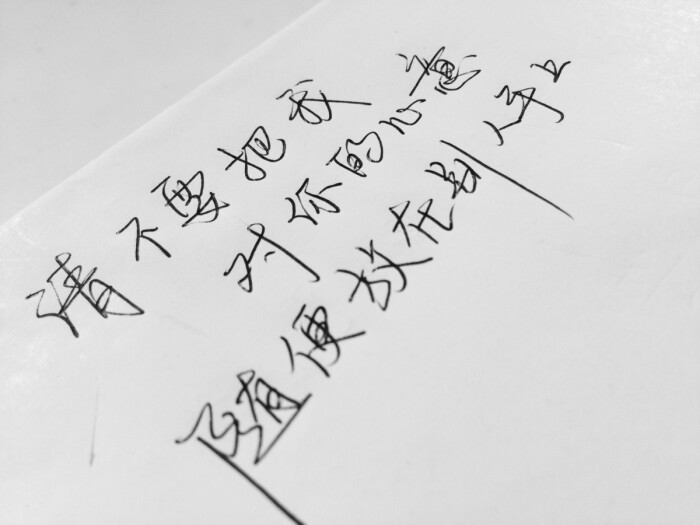 请不要把我
对你的心意
随便放在别人手上